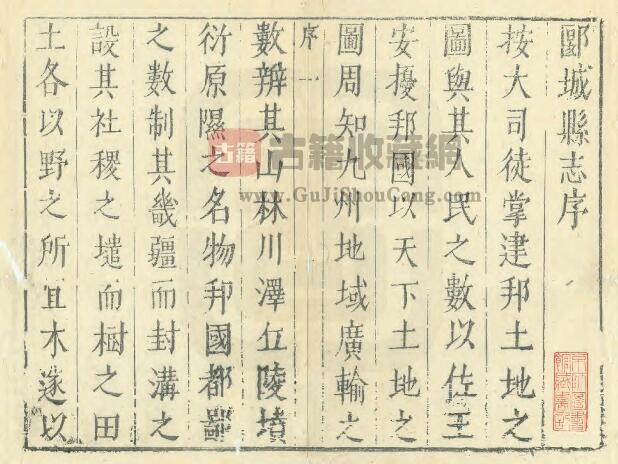 郾城縣志序
按大司徒掌建邦土地之
圖與其人民之數以佐王
安擾邦國以天下土地之
圖周知九州地域廣輪之
序 一
數辨其山林川澤丘陵墳
衍原隰之名物邦國都鄙
之數制其畿疆而封溝之
設其社稷之壝而樹之田
土各以野之所宜木遂以
古籍 古籍收藏網
www.GuJiShouCang.com